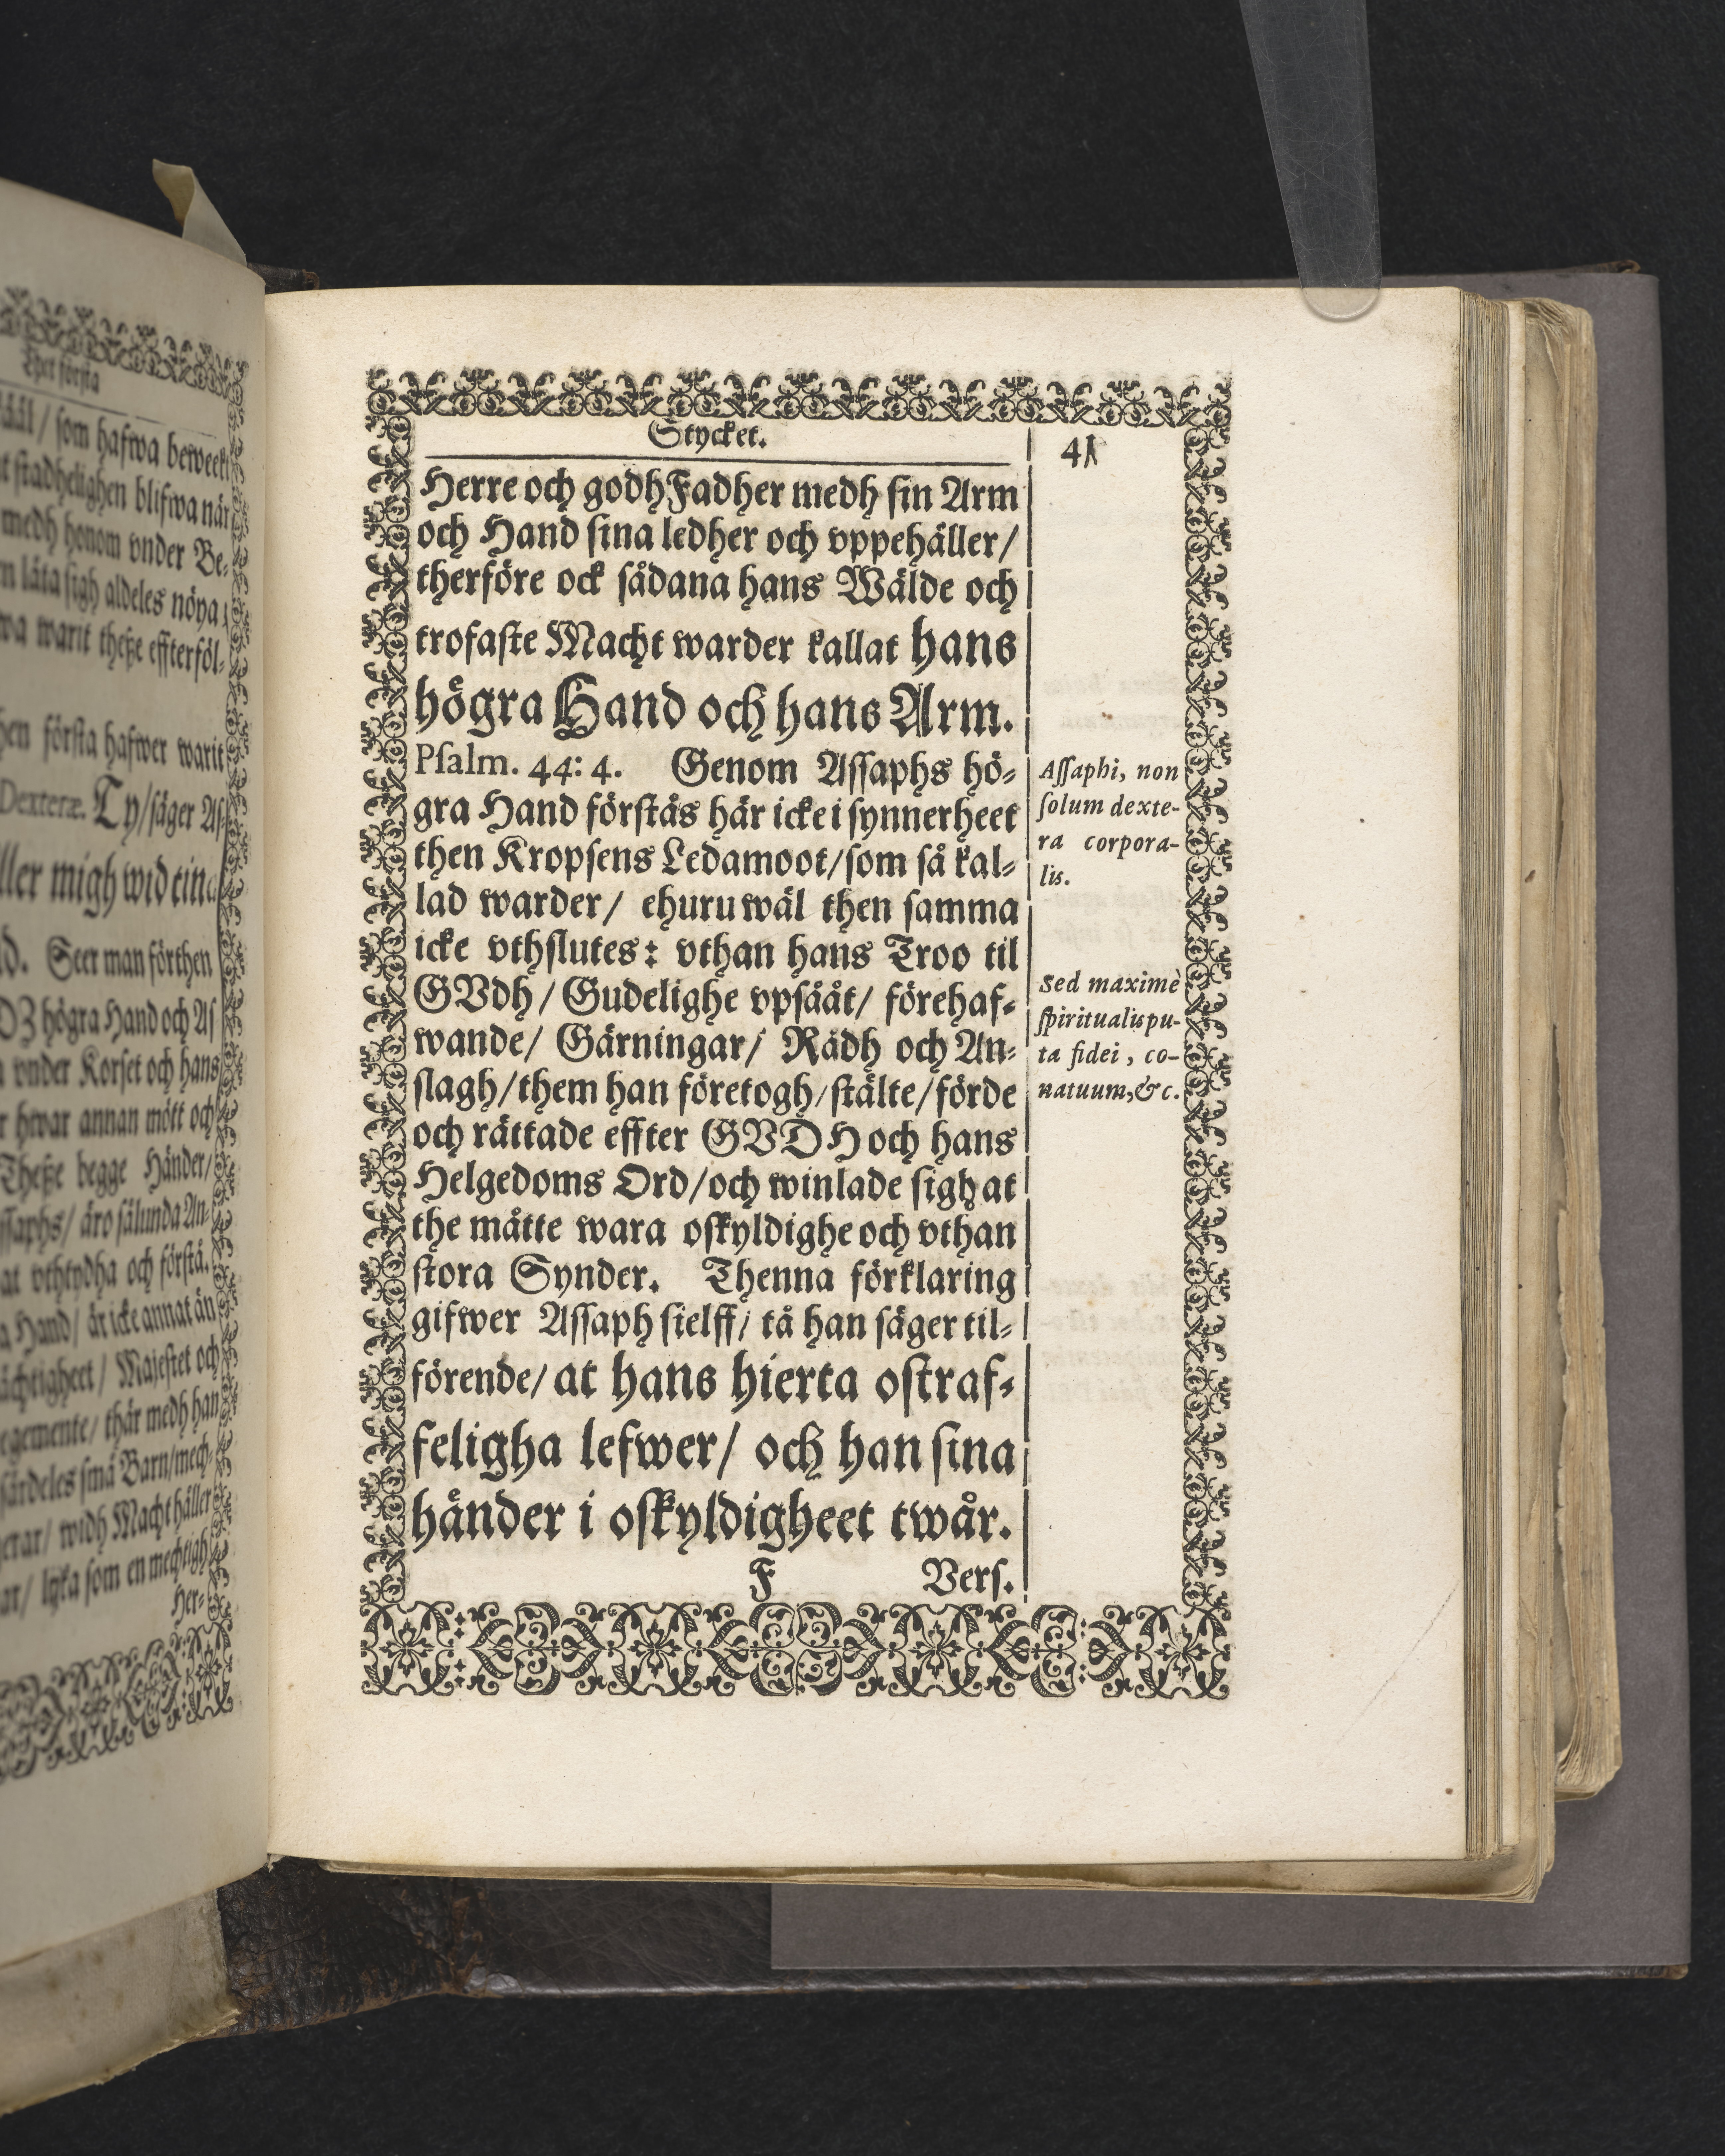 Thet första
ääl/ som hafwa beweekt
t stadhelighen blifwa när
medh honom vnder Be-
m låta sigh aldeles nöya/
wa warit theße effterföl-
hen första hafwer warit
Dexteræ. Ty/säger As-
ller migh wid tin
d. Seer man förthen
högra Hand och As
vnder Korset och hans
r hwar annan mött och
Theße begge Händer/
ssaphs/ äro sålunda An-
at vthtydha och förstå.
a Hand/ är icke annat än
ächtigheet/ Majestet och
egemente/ thär medh han
särdeles små Barn/mech-
erar/ widh Macht håller
ar/ lyka som en mechtigh
Her-
Stycket.
41
Herre och godh Fadher medh sin Arm
och Hand sina ledher och vppehåller/
therföre ock sådana hans Wälde och
trofaste Macht warder kallat hans
högra Hand och hans Arm.
Psalm. 44: 4. Genom Assaphs hö-
gra Hand förstås här icke i synnerheet
then Kropsens Ledamoot/som så kal-
lad warder/ ehuruwäl then samma
icke vthslutes: vthan hans Troo til
GVdh/ Gudelighe vpsååt/ förehaf-
wande/ Gärningar/ Rådh och An-
slagh/them han företogh/stälte/förde
och rättade effter GVDH och hans
Helgedoms Ord/och winlade sigh at
the måtte wara oskyldighe och vthan
stora Synder. Thenna förklaring
gifwer Assaph sielff/ tå han säger til-
förende/ at hans hierta ostraf-
feligha lefwer/ och han sina
händer i oskyldigheet twår.
F Vers.
Assaphi, non
solum dexte-
ra corpora-
lis.
Sed maximè
spiritualis pu-
ta fidei, co-
natuum, &c.